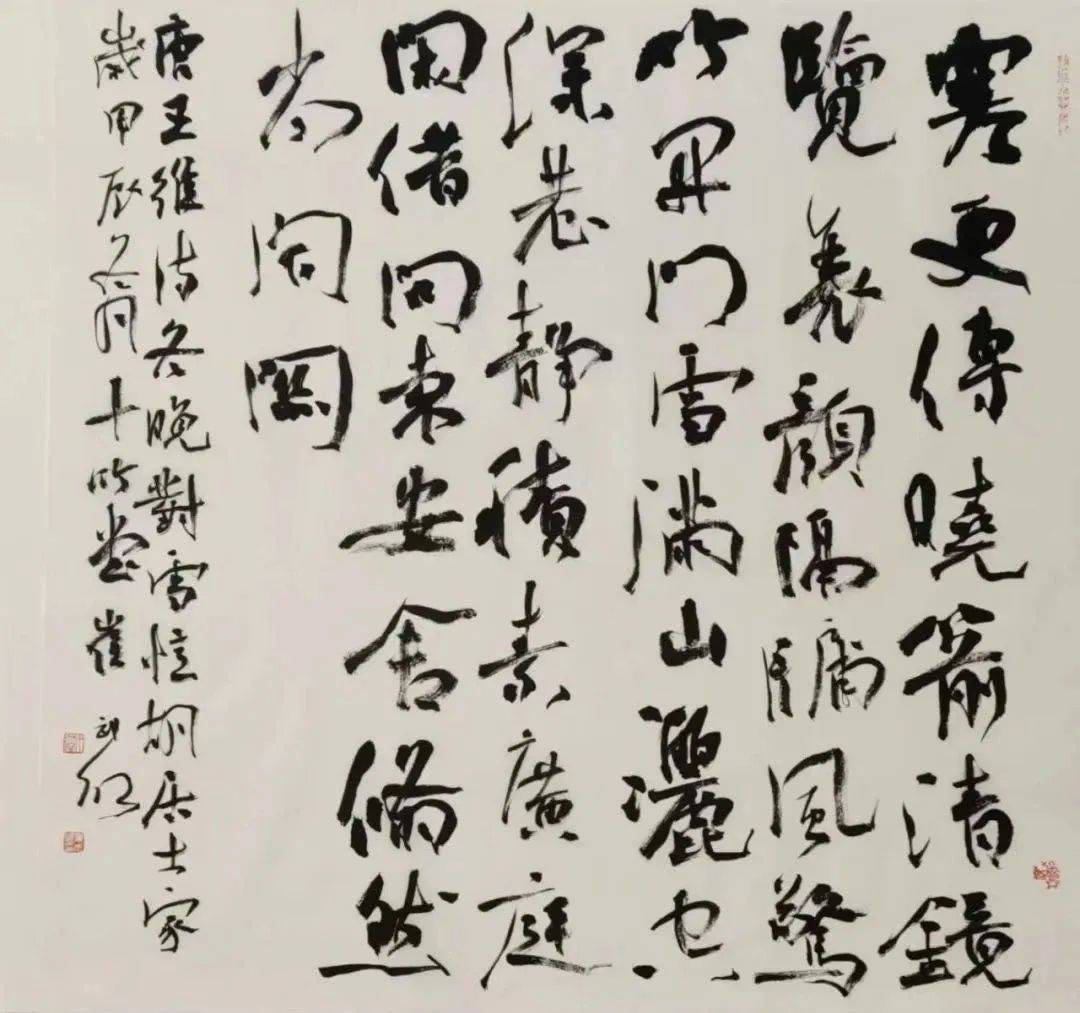 寒更傳曉箭清鏡
覽衰顏隔牖風驚
竹开門雪滿山灑空
深巷静積素廣庭
閑借問袁安舍翛然
尚閉關
唐王維詩冬晚對雪憶胡居士家
歲甲辰冬月十竹堂崔